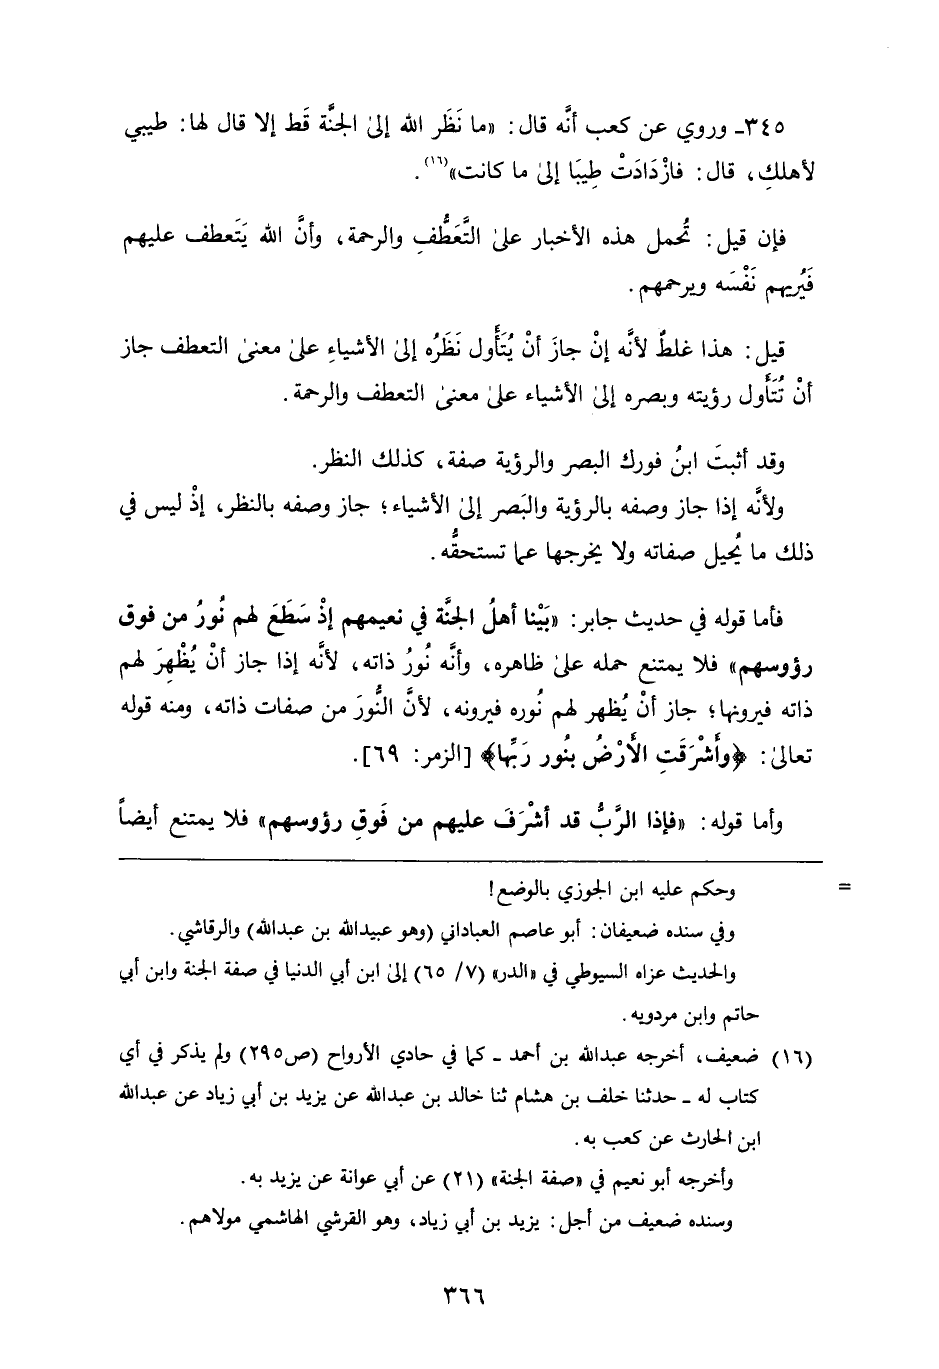 ٣٤٥ـ وروي عن كعب أنَّه قال: «ما نَظَر الله إلىٰ الجنَّة قَط إلا قال لها: طيبي
لأهلكِ، قال: فازْدَادَتْ طِيبَا إلىٰ ما كانت»(١٦).
فإن قيل: تُحمل هذه الأخبار علىٰ التَّعَطُّفِ والرحمة، وأنَّ الله يَتَعطف عليهم
فَيُريهم نَفْسَه ويرحمهم.
قيل: هذا غلطٌ لأنَّه إنْ جازَ أنْ يُتَأَول نَظَرُه إلىٰ الأشياءِ علىٰ معنىٰ التعطف جاز
أنْ تُتَأَول رؤيته وبصره إلىٰ الأشياء علىٰ معنىٰ التعطف والرحمة.
وقد أثبتَ ابنُ فورك البصر والرؤية صفة، كذلك النظر.
ولأنَّه إذا جاز وصفه بالرؤية والبَصر إلىٰ الأشياء؛ جاز وصفه بالنظر، إذْ ليس في
ذلك ما يُحيل صفاته ولا يخرجها عما تستحقُّه.
فأما قوله في حديث جابر: «بَيْنا أهلُ الجنَّة في نعيمهم إذْ سَطَعَ لهم نُورُ من فوق
رؤوسهم» فلا يمتنع حمله علىٰ ظاهره، وأنَّه نُورُ ذاته، لأنَّه إذا جاز أنْ يُظْهِرَ لهم
ذاته فيرونها؛ جاز أنْ يُظهر لهم نُوره فيرونه، لأنَّ النُّورَ من صفات ذاته، ومنه قوله
تعالىٰ: ﴿وأَشْرَقَتِ الأَرْضُ بنُور رَبِّها﴾ [الزمر: ٦٩].
وأما قوله: «فإذا الرَّبُّ قد أشْرَفَ عليهم من فَوقِ رؤوسهم» فلا يمتنع أيضاً
= وحكم عليه ابن الجوزي بالوضع!
وفي سنده ضعيفان: أبو عاصم العباداني (وهو عبيدالله بن عبدالله) والرقاشي.
والحديث عزاه السيوطي في «الدر» (٧/ ٦٥) إلىٰ ابن أبي الدنيا في صفة الجنة وابن أبي
حاتم وابن مردويه.
(١٦) ضعيف، أخرجه عبدالله بن أحمد ـ كما في حادي الأرواح (ص٢٩٥) ولم يذكر في أي
كتاب له ـ حدثنا خلف بن هشام ثنا خالد بن عبدالله عن يزيد بن أبي زياد عن عبدالله
ابن الحارث عن كعب به.
وأخرجه أبو نعيم في «صفة الجنة» (٢١) عن أبي عوانة عن يزيد به.
وسنده ضعيف من أجل: يزيد بن أبي زياد، وهو القرشي الهاشمي مولاهم.
٣٦٦